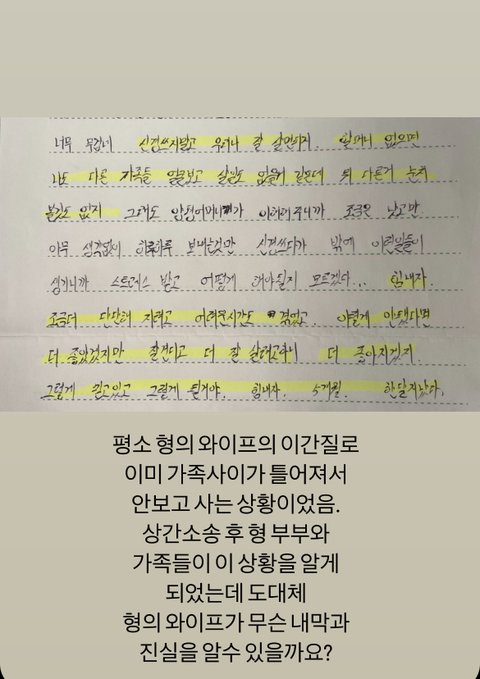 너무 무겁네 신경쓰지말고 우리나 잘 살면되지. 할머니 없으면
나도 다른 가족들 얼굴보고 살일도 없을거 같은데 뭐 다른거 눈치
볼것도 없지 그래도 장정어머니가 이해해주니까 조금은 낫고만
아무 생각없이 하루하루 보내는것만 신경쓰다가 밖에 이런일들이
생기니까 스트레스 받고 어떻게 해야될지 모르겠다... 힘내자.
조금더 단단해 지려고 어려운시간도 겪었고. 이렇게 안됐다면
더 좋았겠지만 할려고 더 잘 살려고하니 더 좋아지겠지
그렇게 믿고있고 그렇게 될거야. 힘내자. 5개월. 한달지났다.
평소 형의 와이프의 이간질로
이미 가족사이가 틀어져서
안보고 사는 상황이었음.
상간소송 후 형 부부와
가족들이 이 상황을 알게
되었는데 도대체
형의 와이프가 무슨 내막과
진실을 알수 있을까요?